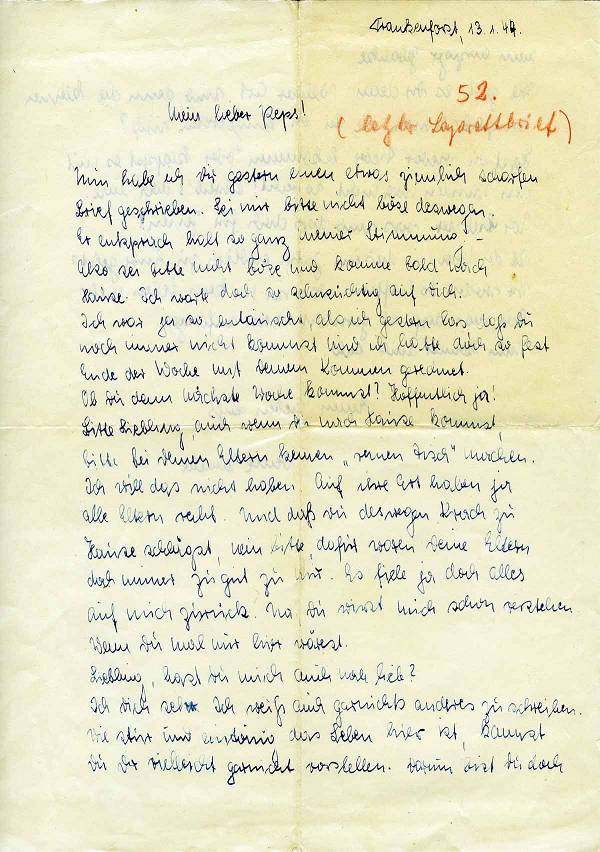 Frankenforst, 13.1.47.
52.
(letzter Lazarettbrief)
Mein lieber Peps!
Nun habe ich dir gestern einen etwas ziemlich scharfen
Brief geschrieben. Sei mir bitte nicht böse deswegen.
Er entsprach halt so ganz meiner Stimmung, –
Also sei bitte nicht böse und komme bald nach
Hause. Ich warte doch so sehnsüchtig auf dich.
Ich war ja so entäuscht, als ich gestern las daß du
noch immer nicht kommst und ich hatte doch so fest
Ende der Woche mit deinem Kommen gerechnet.
Ob du denn nächste Woche kommst? Hoffentlich ja!
Bitte Liebling, auch wenn du nach Hause kommst,
bitte bei deinen Eltern keinen „reinen Tisch" machen.
Ich will das nicht haben. Auf ihre Art haben ja
alle Eltern recht. Und daß du deswegen Krach zu
Hause schlägst, nein bitte, dafür waren deine Eltern
doch immer zu gut zu mir. Es fiele ja doch alles
auf mich zurück. Na du wirst mich schon verstehen.
Wenn du mal nur hier wärst.
Liebling, hast du mich auch noch lieb?
Ich dich sehr. Ich weiß auch garnichts anderes zu schreiben.
Wie stur und eintönig das Leben hier ist, kannst
du dir vielleicht garnicht vorstellen. Darum bist du doch